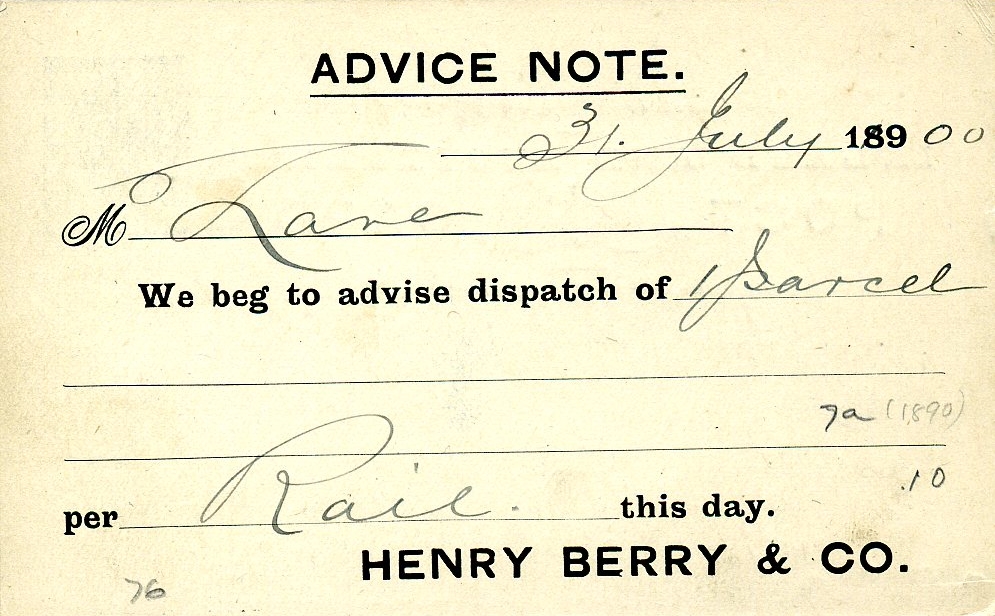 ADVICE NOTE.
31. July 18900
M Lane
We beg to advise dispatch of 1 Parcel
7a (1890)
.10
per Rail. this day.
HENRY BERRY & CO.
76